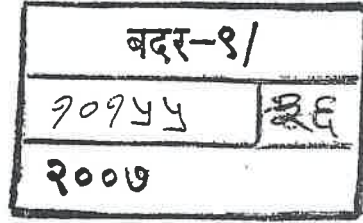 बदर-९/
१०१५५ ३६
२००७